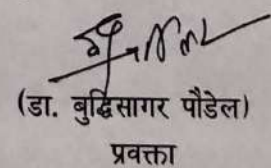 (डा. बुद्धिसागर पौडेल)
प्रवक्ता